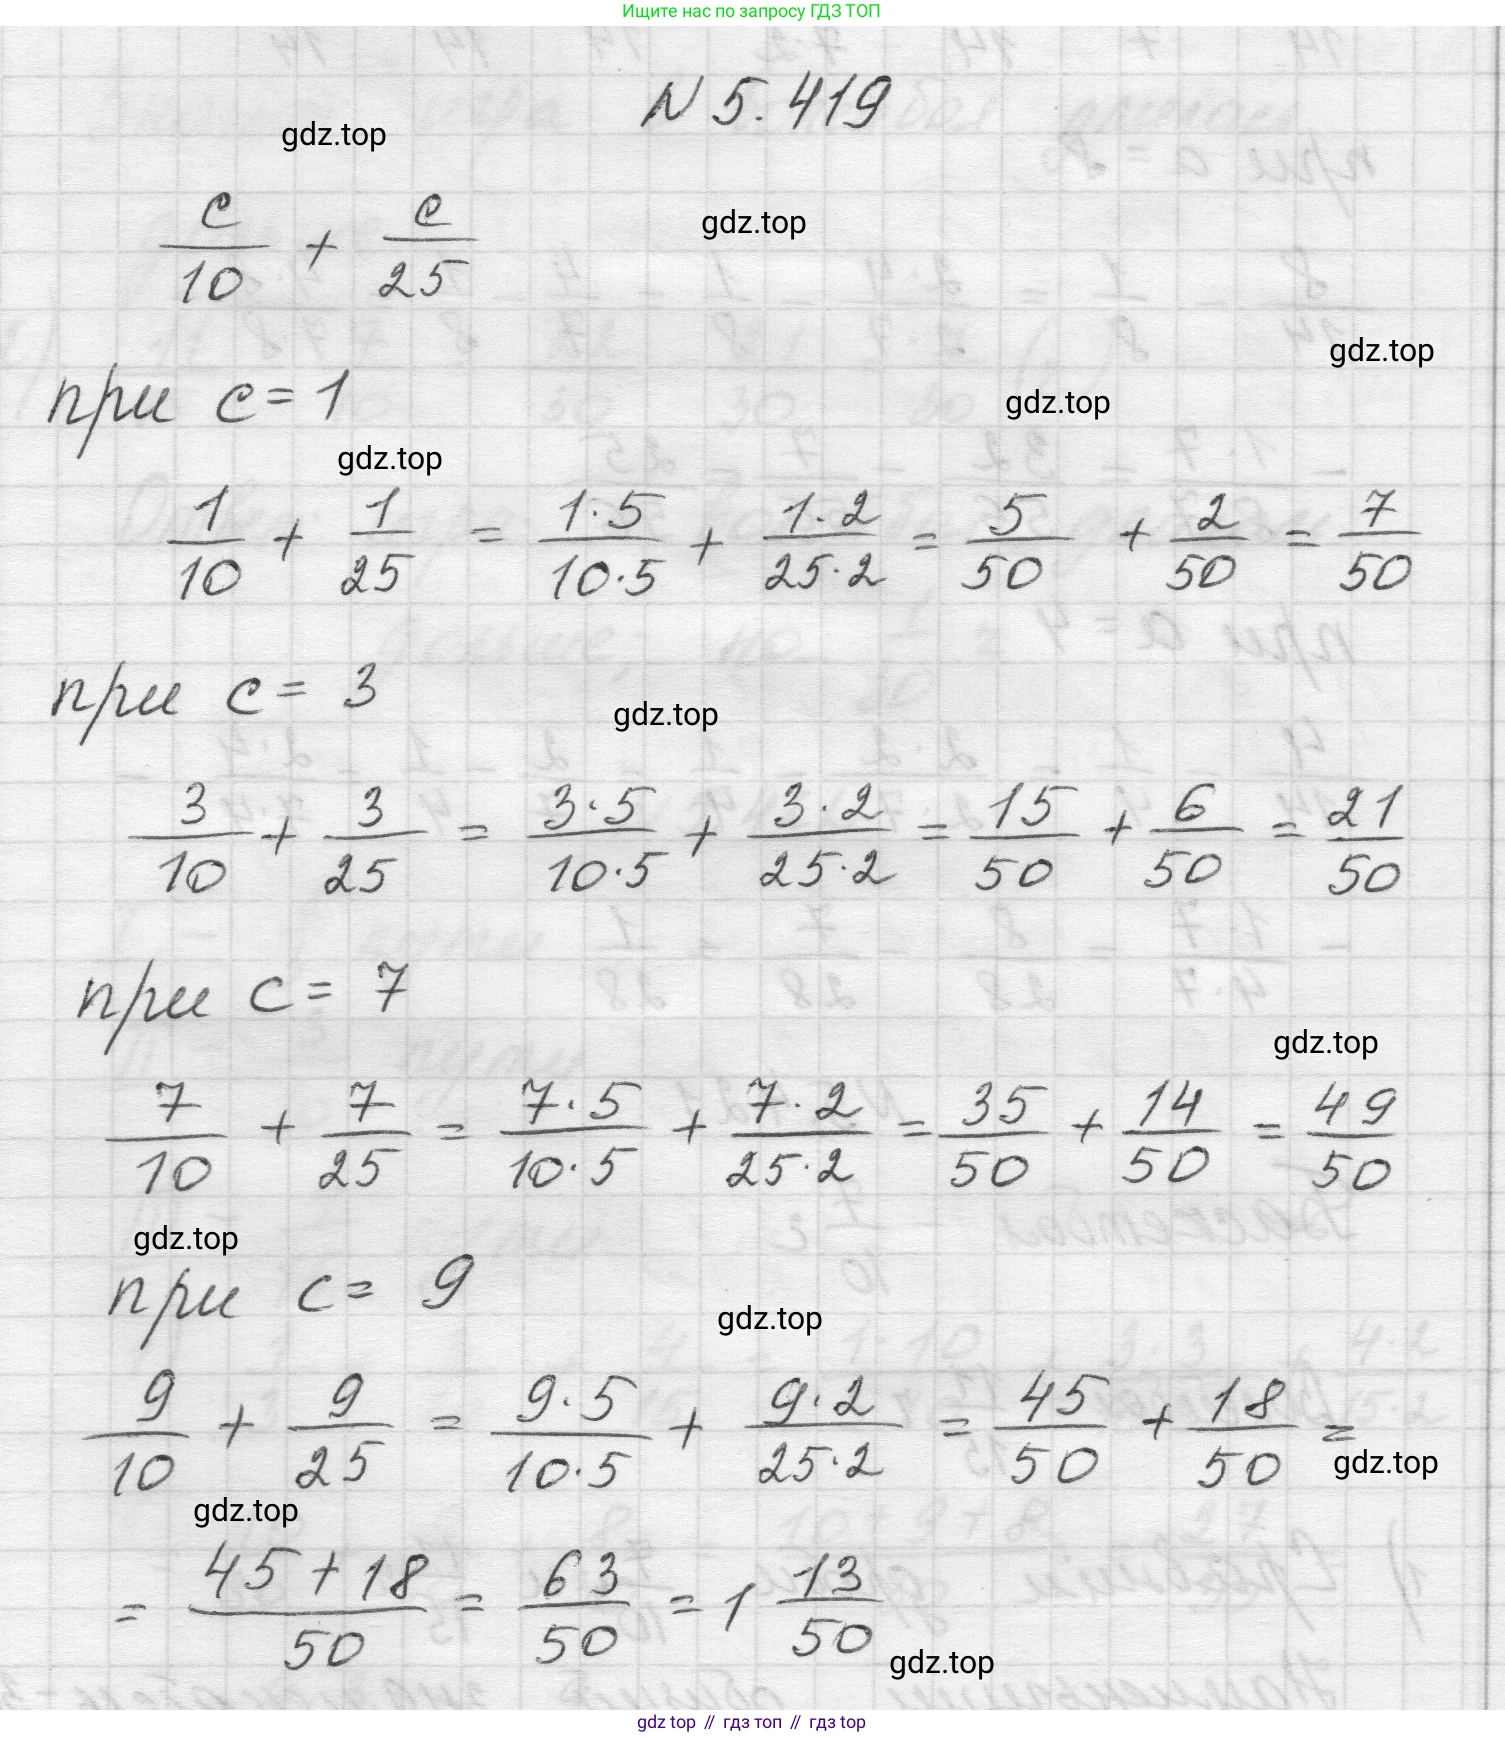 Ищите нас по запросу ГДЗ ТОП
N 5.419
gdz.top
c/10 + c/25
gdz.top
gdz.top
при c = 1
gdz.top
gdz.top
1/10 + 1/25 = 1·5/10·5 + 1·2/25·2 = 5/50 + 2/50 = 7/50
при c = 3
gdz.top
3/10 + 3/25 = 3·5/10·5 + 3·2/25·2 = 15/50 + 6/50 = 21/50
при c = 7
gdz.top
7/10 + 7/25 = 7·5/10·5 + 7·2/25·2 = 35/50 + 14/50 = 49/50
gdz.top
при c = 9
gdz.top
9/10 + 9/25 = 9·5/10·5 + 9·2/25·2 = 45/50 + 18/50 =
gdz.top
gdz.top
= 45+18/50 = 63/50 = 1 13/50
gdz.top
gdz top // гдз топ // гдз top